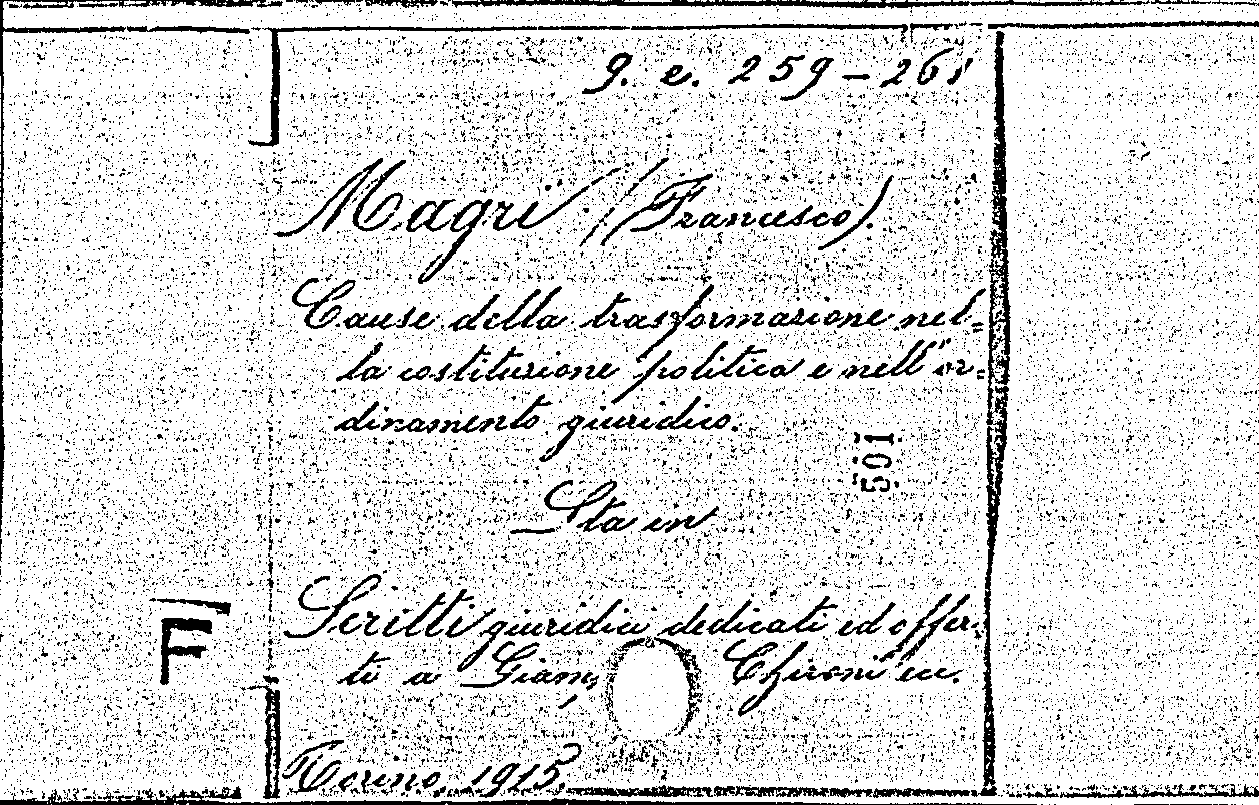 9. e. 259-261
Magri (Francesco).
Cause della trasformazione nel=
la costituzione politica e nell'or=
dinamento giuridico.
501
Sta in
Scritti giuridici dedicati ed offer=
ti a Giamp. Chironi ecc.
F
Torino, 1915